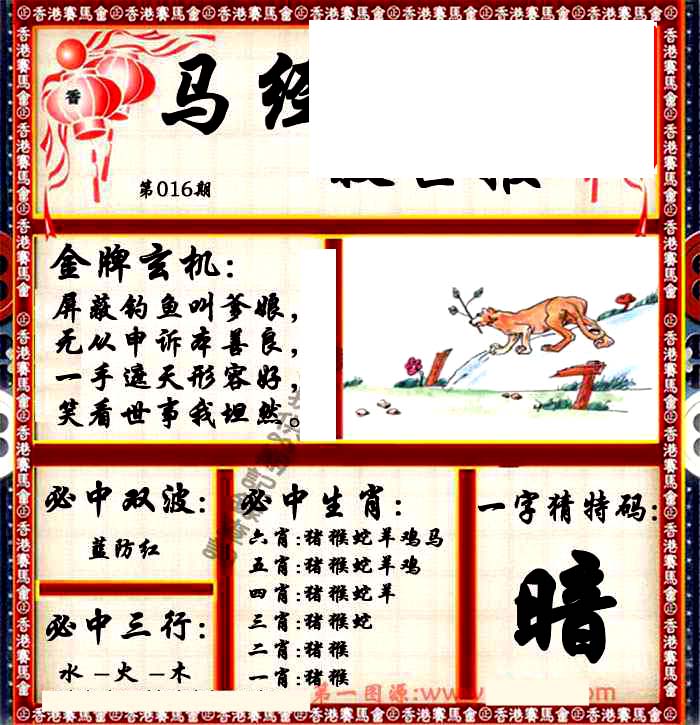 香港賽馬會
香
马经
第016期
金牌玄机:
屏蔽钓鱼叫爹娘,
无从申诉本善良,
一手遮天形容好,
笑看世事我坦然。
必中双波:
蓝防红
必中三行:
水－火－木
必中生肖:
六肖:猪猴蛇羊鸡马
五肖:猪猴蛇羊鸡
四肖:猪猴蛇羊
三肖:猪猴蛇
二肖:猪猴
一肖:猪猴
一字猜特码:
暗
第一图源:www.
om